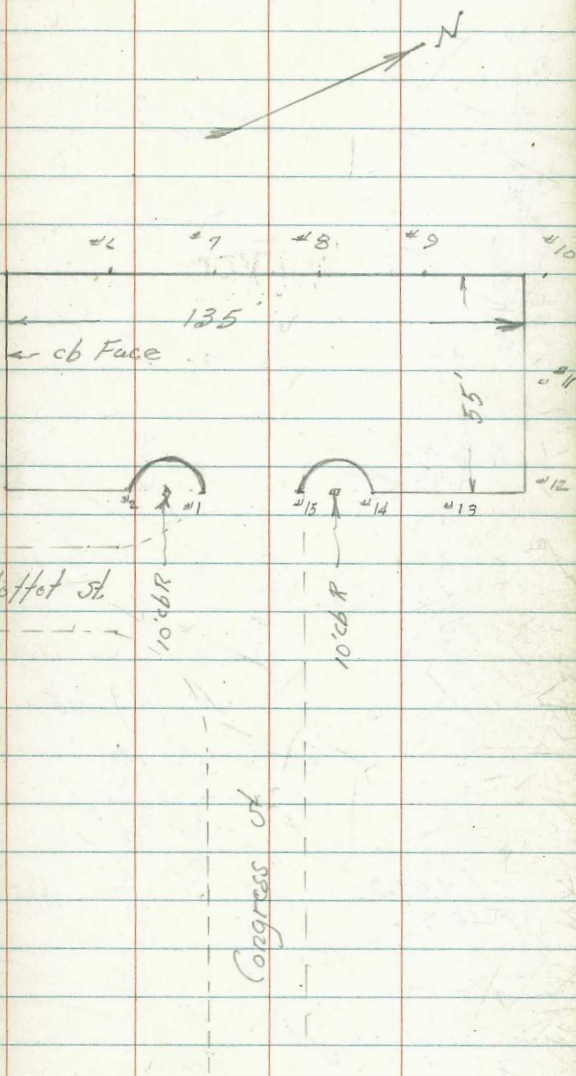 N
#6 #7 #8 #9 #10
135'
cb Face
55'
#11
#2 #1 #15 #14 #13 #12
St.
10'cbR 10'cbR
Congress St